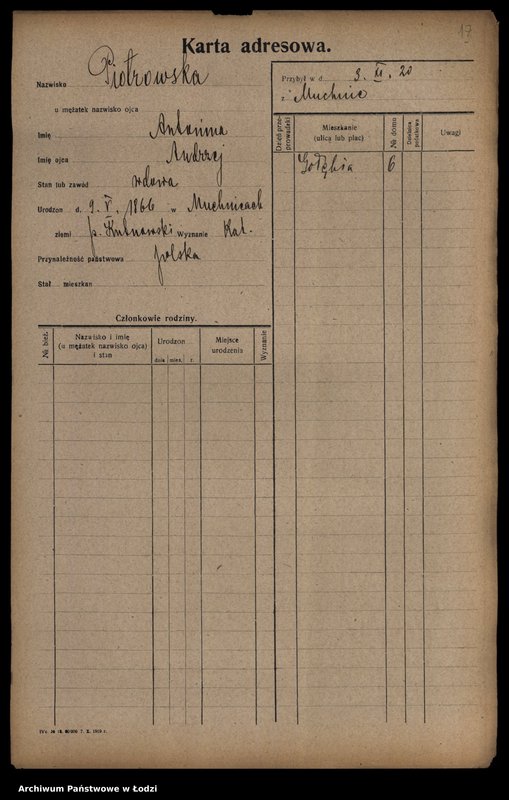 17
Karta adresowa.
Nazwisko Piotrowska
u mężatek nazwisko ojca
Imię Antonina
Imię ojca Andrzej
Stan lub zawód wdowa
Urodzon d. 9. V. 1866 w Muchnicach
ziemi p. Kutnowski Wyznanie Kat.
Przynależność państwowa polska
Stał. mieszkan
Przybył w d. 3. XI. 20
z Muchnic
Dzień przeprowadzki
Mieszkanie
(ulica lub plac)
№ domu
Dzielnica
Uwagi
Gołębia 6
Członkowie rodziny.
№ bież.
Nazwisko i imię
(u mężatek nazwisko ojca)
i stan
Urodzon
dnia mies. r.
Miejsce
urodzenia
Wyznanie
7. X. 1919 r.
Archiwum Państwowe w Łodzi